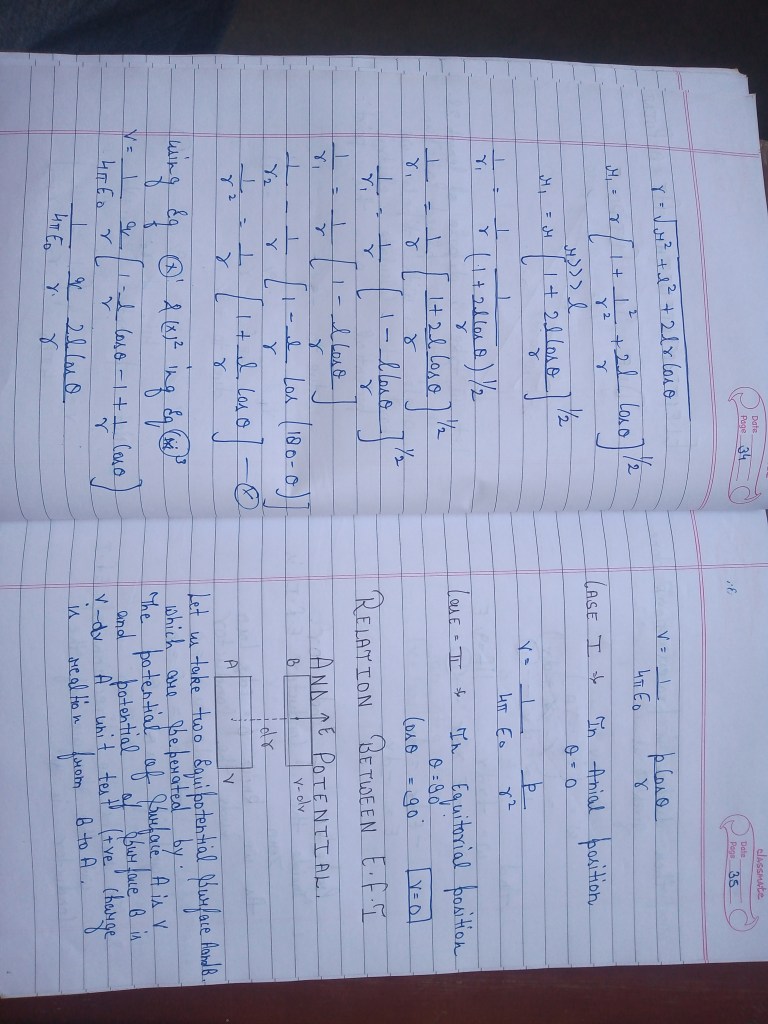 Date
Page 34
r = √r² + l² + 2lr cosθ
r₁ = r [1 + l²/r² + 2l/r cosθ]^1/2
r>>>l
r₁ = r [1 + 2l cosθ/r]^1/2
1/r₁ = 1/r 1/(1 + 2l cosθ/r)^1/2
1/r₁ = 1/r [1 + 2l cosθ/r]^1/2
1/r₁ = 1/r [1 - l cosθ/r]^1/2
1/r₁ = 1/r [1 - l cosθ/r]
1/r₂ - 1/r [1 - l/r cos (180 - θ)]
1/r₂ = 1/r [1 + l/r cosθ] — (x)
using Eq (x)¹ & (x)² ing Eq (xi)³
V = 1/4πE₀ q/r [1 - l/r cosθ - 1 + l/r cosθ]
1/4πE₀ q/r 2l cosθ/r
classmate
Date
Page 35
V = 1/4πE₀ p cosθ/r
CASE I → In Axial position
θ = 0
V = 1/4πE₀ p/r²
Case = II → In Equitorial position
θ = 90°
cosθ = 90° V=0
RELATION BETWEEN E.F.I
AND ↑E POTENTIAL.
B V-dv
dr
A V
Let us take two Equipotential surface AandB.
which are seperated by.
The potential of surface A is V
and potential of surface B is
V-dv A unit test (+ve charge
is from B to A.